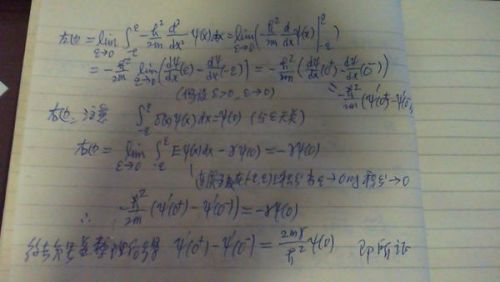 左边 = lim_{ε→0} ∫_{-ε}^{ε} -ħ²/2m d²/dx² ψ(x)dx = lim_{ε→0} (-ħ²/2m d/dx ψ(x)|_{-ε}^{ε})
= -ħ²/2m lim_{ε→0} (dψ/dx(ε) - dψ/dx(-ε)) = -ħ²/2m (dψ/dx(0⁺) - dψ/dx(0⁻))
(假设 ε>0, ε→0) = -ħ²/2m (ψ'(0⁺) - ψ'(0⁻))
右边: 注意 ∫_{-ε}^{ε} δ(x)ψ(x)dx = ψ(0) (与ε无关)
右边 = lim_{ε→0} ∫_{-ε}^{ε} Eψ(x)dx - γψ(0) = -γψ(0)
连续函数在(-ε,ε)上积分当ε→0时积分→0
∴ -ħ²/2m (ψ'(0⁺) - ψ'(0⁻)) = -γψ(0)
ψ'(0⁺) - ψ'(0⁻) = 2mγ/ħ² ψ(0) 即所证